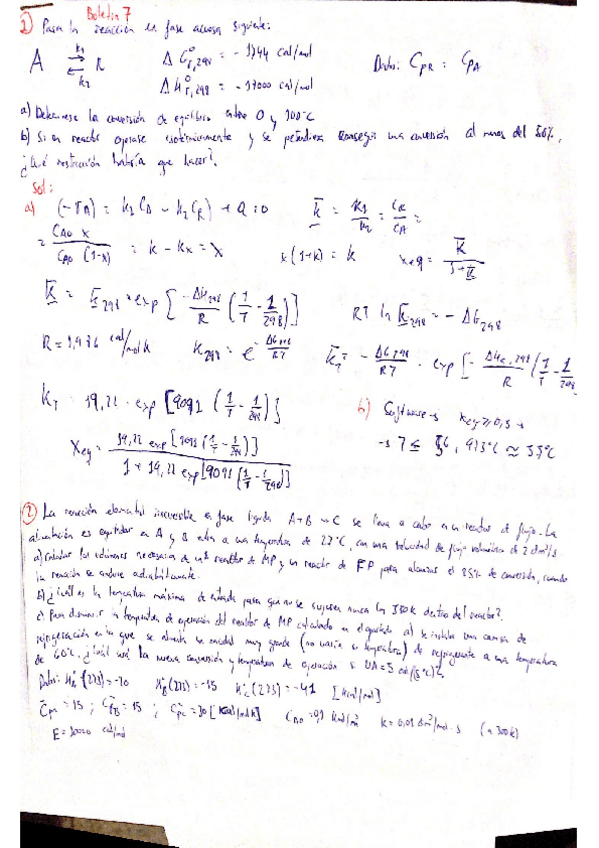 Boletín 7
1) Para la reacción en fase acuosa siguiente:
A ⇄ R k1 k2 ΔG°r,298 = -1744 cal/mol Datos: CpR = CpA
ΔH°r,298 = -17000 cal/mol
a) Determinese la conversión de equilibrio entre 0 y 100°C
b) Si en reactor operase isotérmicamente y se pretendiera conseguir una conversión al menos del
¿Qué restricción habría que hacer?
Sol:
a) (-rA) = k1 CA - k2 CR) + Q = 0 k = k1/k2 = CR/CA =
= CA0 x / CA0 (1-x) = k - kx = x x(1+k) = k xeq = k/(1+k)
k = k298 · exp [-ΔH298/R (1/T - 1/298)] RT ln k298 = -ΔG298
R = cal/mol k k298 = e
kT = 19,22 · exp [9092 (1/T - 1/298)] b) Software → xeq ≥ 0,5 →
→ T ≤ 56,913°C ≈ 55°C
xeq = 19,22 exp [9092 (1/T - 1/298)] / 1 + 19,22 exp [9092 (1/T - 1/298)]
2) La reacción elemental irreversible en fase líquida A+B → C se lleva a cabo en un reactor de flujo. La
alimentación es equimolar en A y B entra a una temperatura de 27°C, con una velocidad de flujo volumétrico de 2 dm³/s.
a) Calcular los volúmenes necesarios de un reactor de MP y un reactor de FP para alcanzar el 85% de conversión, cuando
la reacción se conduce adiabáticamente.
b) ¿Cuál es la temperatura máxima de entrada para que no se supere nunca los 550k dentro del reactor?
c) Para disminuir la temperatura de operación del reactor de MP calculado en el apartado a) se instala una camisa de
refrigeración en la que se alimenta un caudal muy grande (no varía su temperatura) de refrigerante a una temperatura
de 60°C, ¿Cuál será la nueva conversión y temperatura de operación si UA =
Datos: H°A (273) = -20 H°B (273) = -15 H°C (273) = -41 [kcal/mol]
CpA = 15 ; CpB = 15 ; CpC = 30 CA0 = 0,1 kmol/m³ k = 0,01 dm³/mol·s (a 300k)
E = 10000 cal/mol